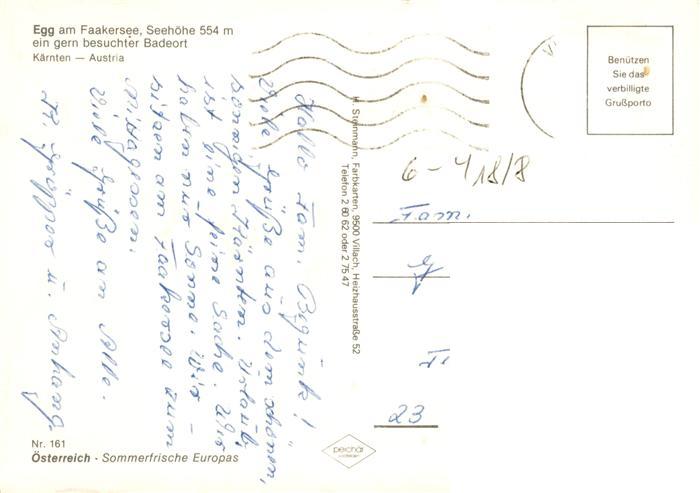 Egg am Faakersee, Seehöhe 554 m
ein gern besuchter Badeort
Kärnten — Austria
Hallo Fam.
Viele Grüße aus dem schönen,
sonnigen Kärnten. Urlaub,
ist eine feine Sache. Wir
haben nur Sonne. Wir -
sitzen am Faakersee zum
Mittagessen.
Viele Grüße an Alle.
u. Anhang.
Nr. 161
Österreich · Sommerfrische Europas
H. Steinmann, Farbkarten, 9500 Villach, Heizhausstraße 52
Telefon 2 60 62 oder 2 75 47
peichär
Benützen
Sie das
verbilligte
Grußporto
6-418/8
Fam.
23